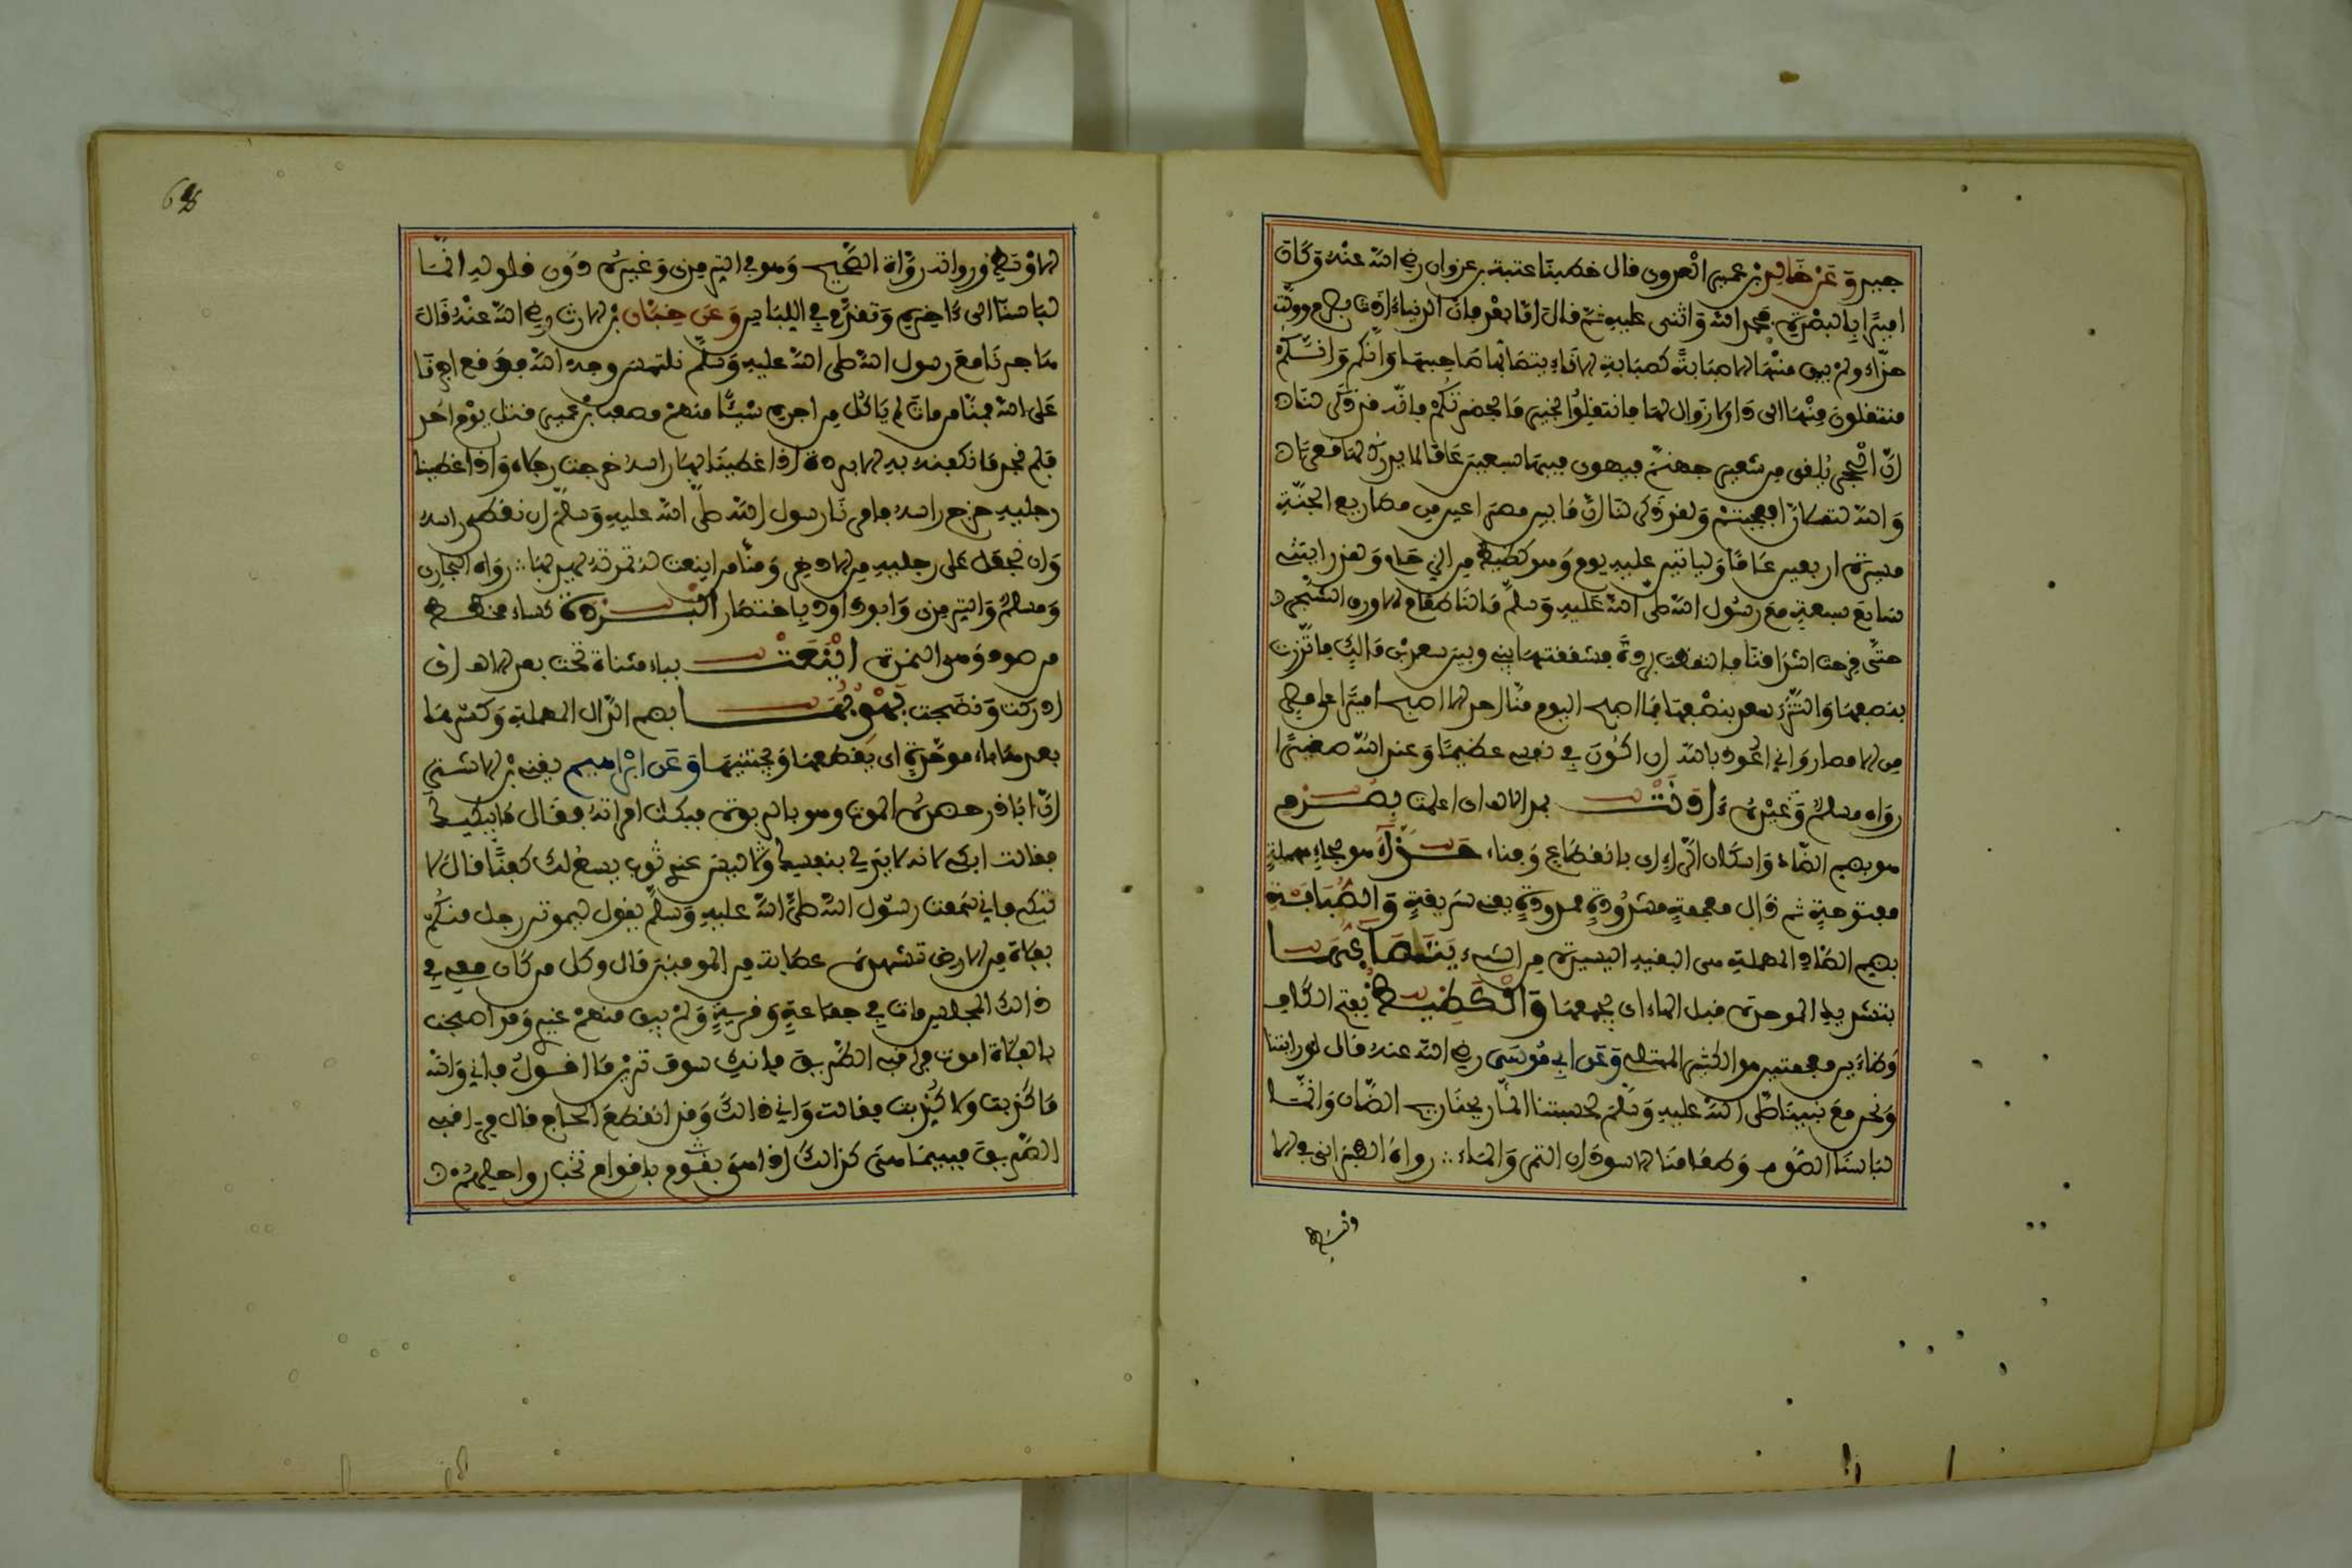 جبير وَعَنْ خَالِدِ بْن عمير العدوي قال خطبنا عتبة بن غزوان رضي الله عنه وكان
اميرًا بالبصرة فحمد الله واثنى عليه ثم قال اما بعد فان الدنيا ءاذنت بصرم وولت
حذاء ولم يبق منها الا صبابة كصبابة الاناء يتصابها صاحبها وانكم
منتقلون منها الى دار لا زوال لها فانتقلوا بخير ما بحضرتكم فانه قد ذكر لنا
ان الحجر يلقى من شفير جهنم فيهوي فيها سبعين عاما لا يدرك لها قعرًا
والله لتملأن افعجبتم ولقد ذكر لنا ان ما بين مصراعين من مصاريع الجنة
مسيرة اربعين عاما ولياتين عليه يوم وهو كظيظ من الزحام ولقد رايتني
سابع سبعة مع رسول الله صلى الله عليه وسلم مالنا طعام الا ورق الشجر
حتى قرحت اشداقنا فالتقطت بردة فشققتها بيني وبين سعد بن مالك فاتزرت
بنصفها واتزر سعد بنصفها فما اصبح اليوم منا احد الا اصبح اميرًا على مصر
من الامصار واني اعوذ بالله ان اكون في نفسي عظيما وعند الله صغيرًا
رواه مسلم وغيره ءاذنت بمد الالف اي اعلمت بصرم
هو بضم الصاد واسكان الراء اي بانقطاع وفناء حذاء هو بحاء مهملة
مفتوحة ثم ذال معجمة مشدودة ممدودة يعني سريعة والصبابة
بضم الصاد المهملة هي البقية اليسيرة من الشيء يتصابها
بتشديد الموحدة قبل الهاء اي يجمعها والكظيظ بفتح الكاف
وظاءين معجمتين هو الكثير الممتلئ وعن ابي موسى رضي الله عنه قال لو رايتنا
ونحن مع نبينا صلى الله عليه وسلم لحسبتنا انما ريحنا ريح الضان وانما
لباسنا الصوف وطعامنا الاسودان التمر والماء رواه الطبراني في الا
وسط
الاوسط ورواته رواة الصحيح وهو في الترمذي وغيره دون قوله انما
لباسنا الى ءاخره وتقدم في اللباس وعن خباب بن الارت رضي الله عنه قال
هاجرنا مع رسول الله صلى الله عليه وسلم نلتمس وجه الله فوقع اجرنا
على الله فمنا من مات لم ياكل من اجره شيئا منهم مصعب بن عمير قتل يوم احد
فلم نجد ما نكفنه به الا بردة اذا غطينا بها راسه خرجت رجلاه واذا غطينا
رجليه خرج راسه فامرنا رسول الله صلى الله عليه وسلم ان نغطي راسه
وان نجعل على رجليه من الاذخر ومنا من اينعت له ثمرته فهو يهدبها رواه البخاري
ومسلم والترمذي وابو داود باختصار البردة كساء مخطط
من صوف وهي النمرة اينعت بياء مثناة تحت بعد الالف اي
ادركت ونضجت يهدبها بضم الدال المهملة وكسرها
بعدها باء موحدة اي يقطعها ويجتنيها وعن ابراهيم يعني بن الاشتر
ان ابا ذر حضره الموت وهو بالربذة فبكت امراته فقال ما يبكيك
فقالت ابكي لانه لا يد لي بنفسك وليس عندي ثوب يسع لك كفنا قال لا
تبكي فاني سمعت رسول الله صلى الله عليه وسلم يقول ليموتن رجل منكم
بفلاة من الارض تشهده عصابة من المومنين قال وكل من كان معي في
ذالك المجلس مات في جماعة وقرية ولم يبق منهم غيري وقد اصبحت
بالفلاة اموت فراقبي الطريق فانك سوف ترين ما اقول فاني والله
ما كذبت ولا كذبت فقالت واني ذالك وقد انقطع الحاج قال فراقبي
الطريق فبينما هي كذالك اذا هي بقوم باقوام تخب رواحلهم